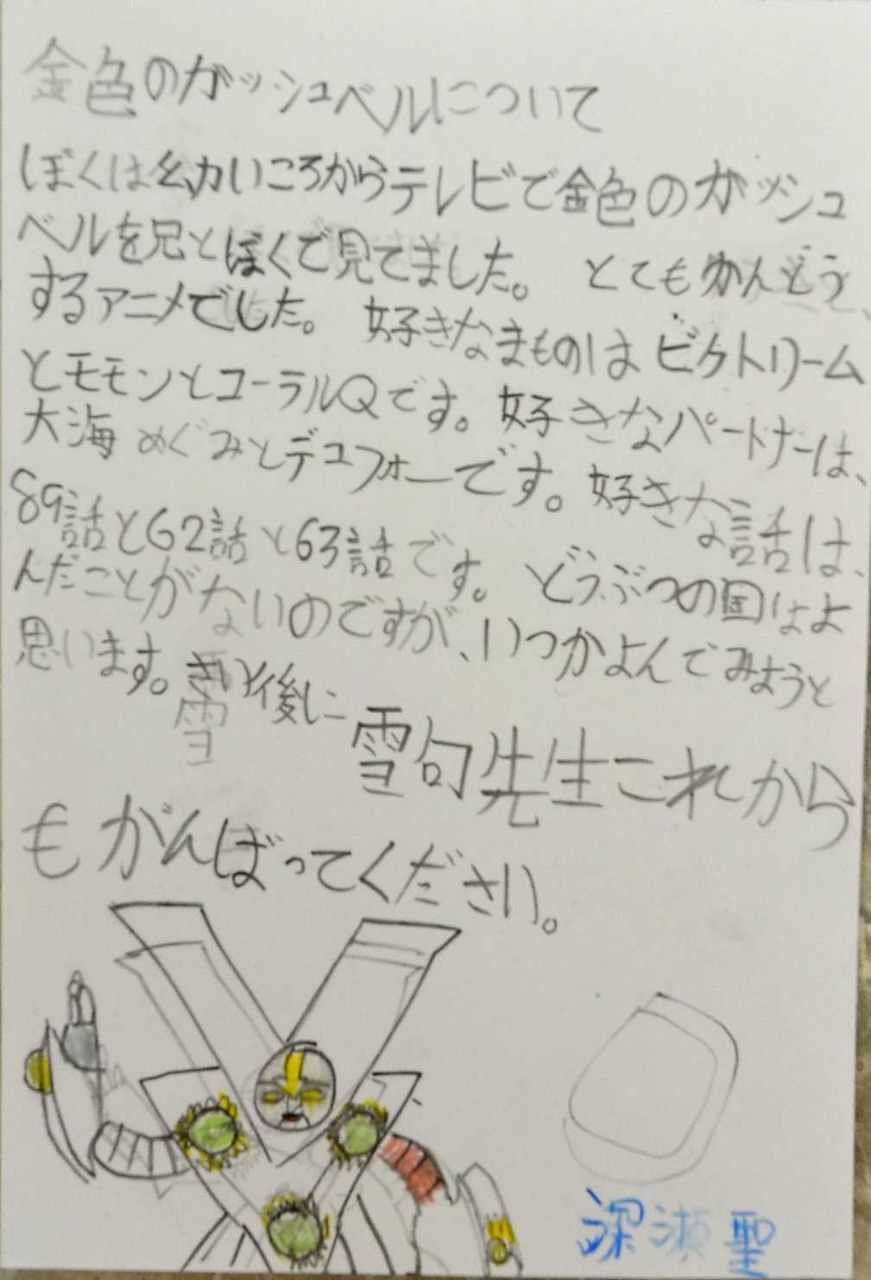 金色のガッシュベルについて
ぼくは幼いころからテレビで金色のガッシュ
ベルを兄とぼくで見てました。 とてもかんどう
するアニメでした。 好きなまものは ビクトリーム
とモモンとコーラルQです。好きなパートナーは、
大海 めぐみとデュフォーです。好きな話は、
89話と62話と63話です。 どうぶつの国はよ
んだことがないのですが、いつかよんでみようと
思います。さいご後に 雪句先生これから
もがんばってください。
深瀬聖